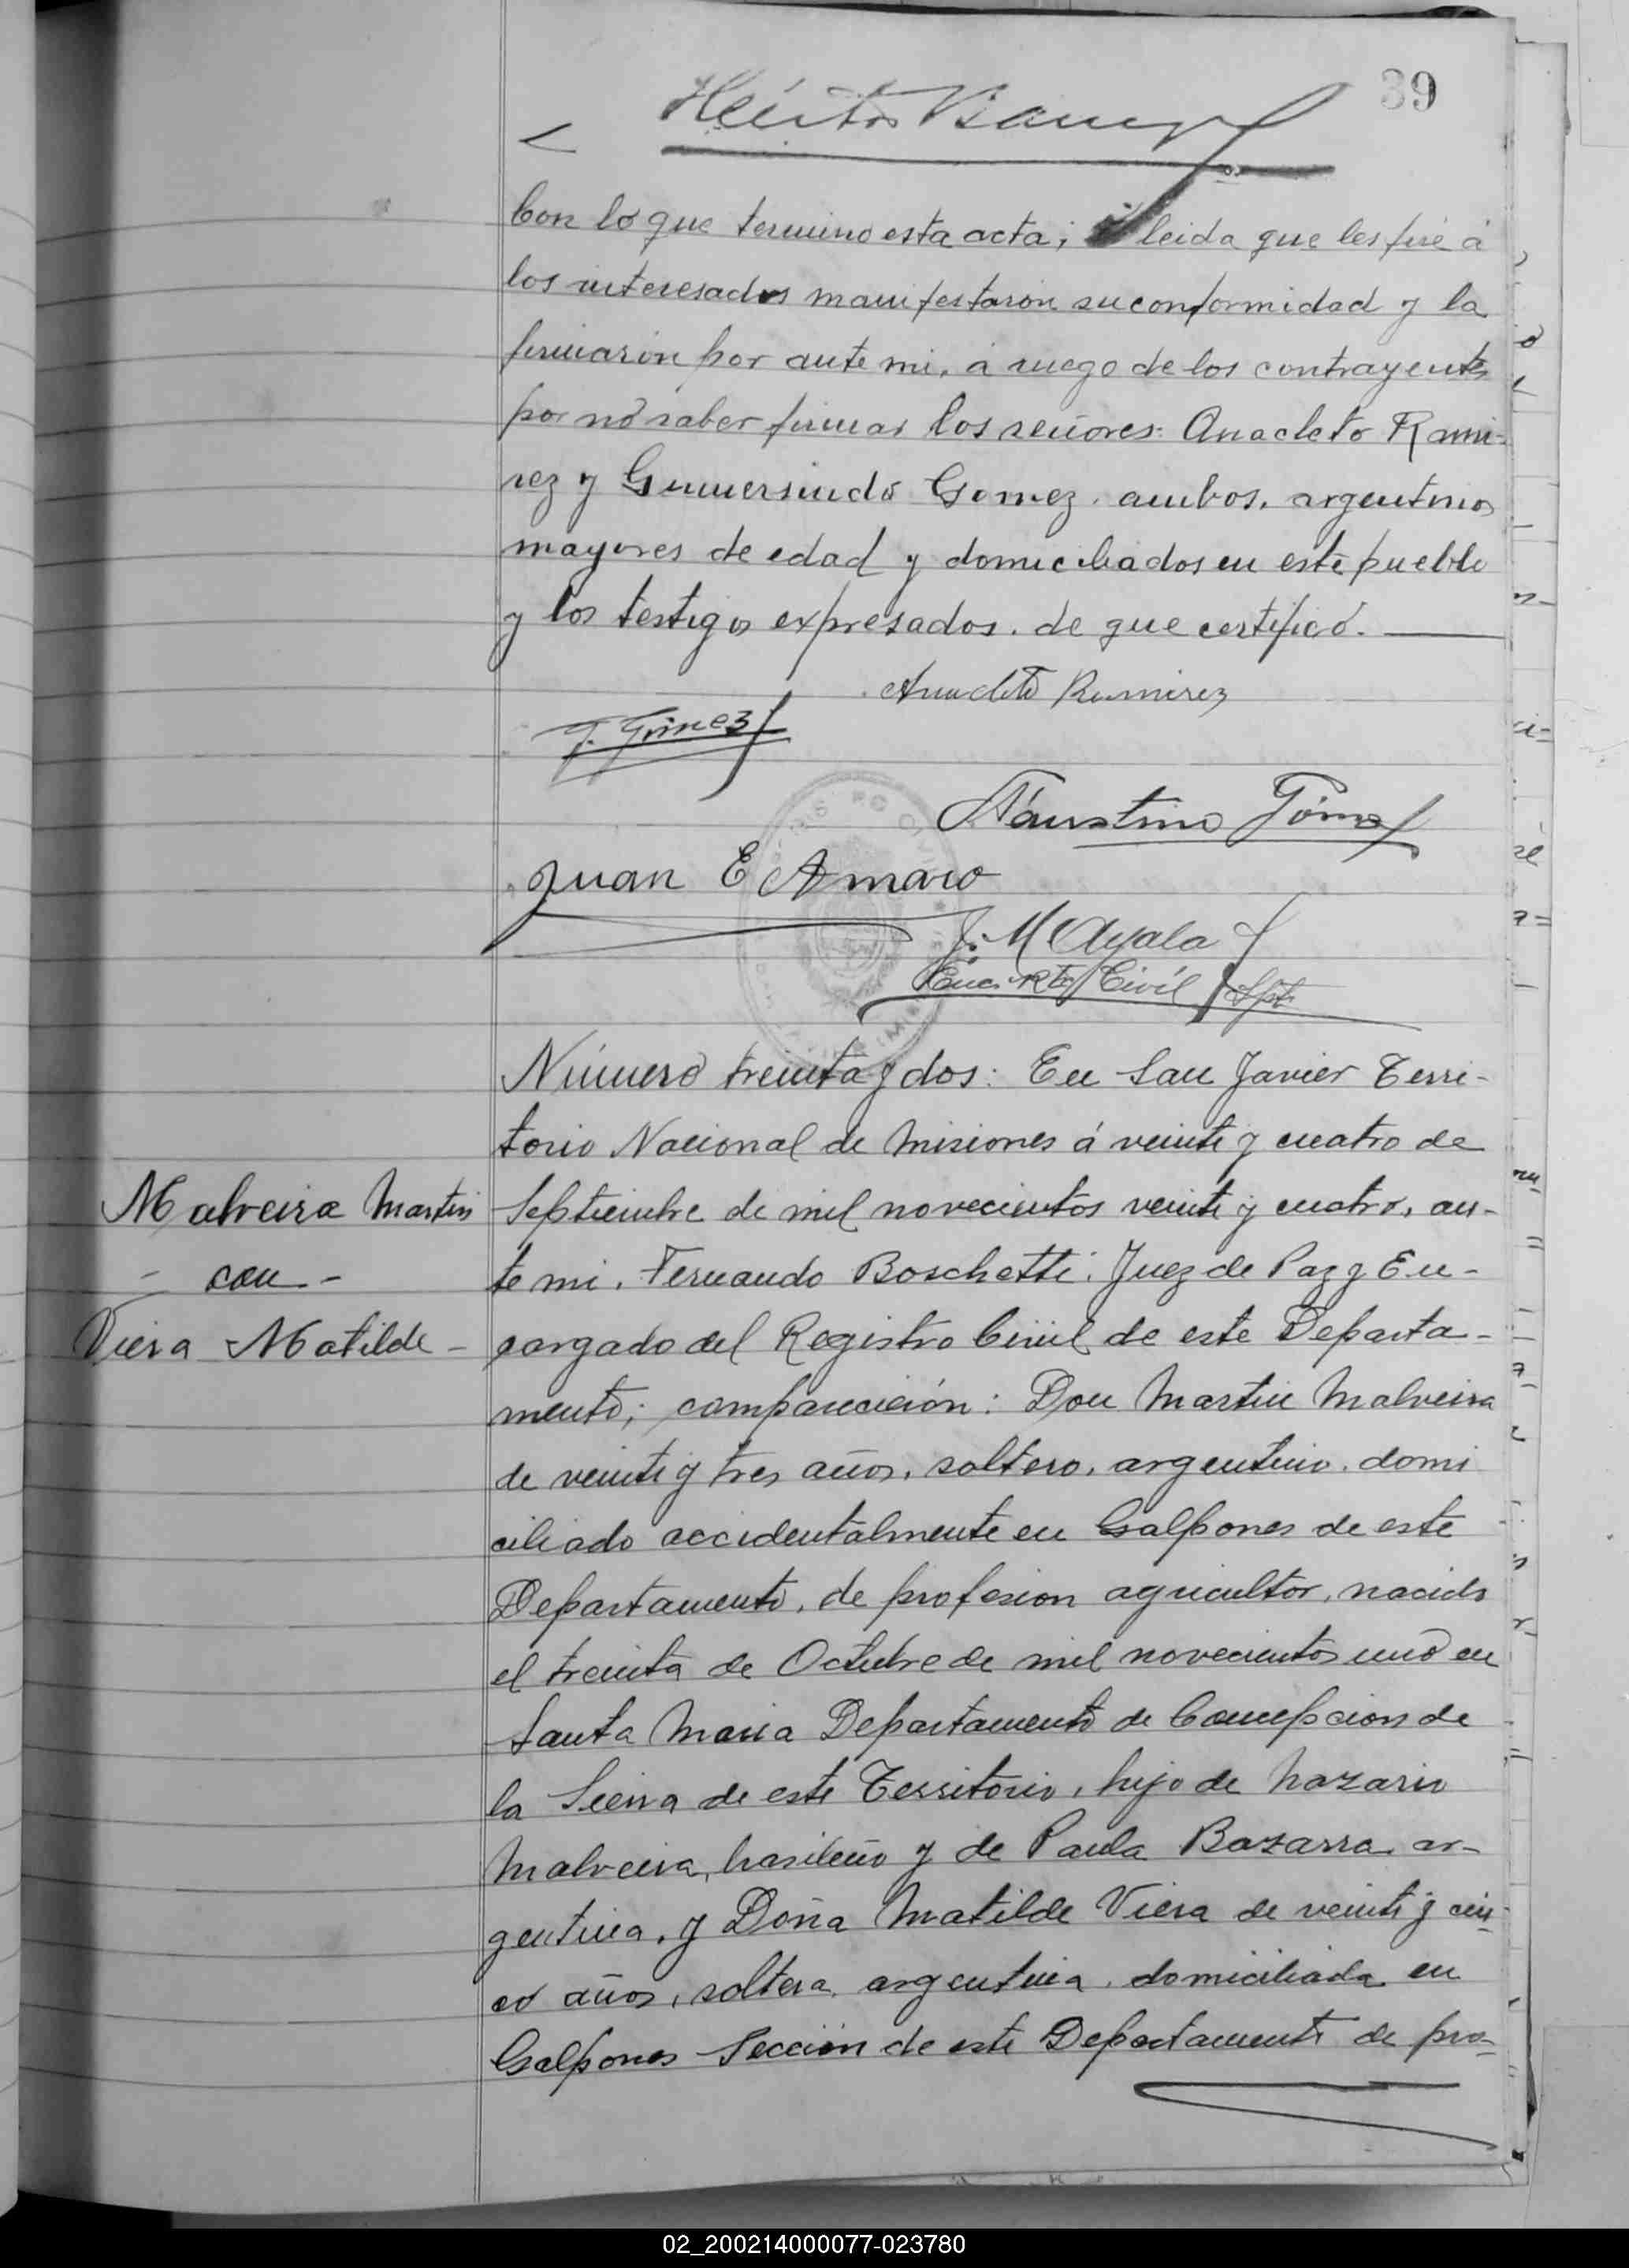 39
Con lo que termino esta acta; leida que les fué á
los interesados manifestaron su conformidad y la
firmaron por ante mi, a ruego de los contrayentes
por no saber firmar los señores: Anacleto Rami-
rez y Gumersindo Gomez, ambos, argentinos
mayores de edad y domiciliados en este pueblo
y los testigos expresados. de que certifico.
Anacleto Ramirez
G. Gómez
Faustino Gómez
Juan E Amaro
J. M Ayala
Enc. Rto Civil
Número treinta y dos: En San Javier Terri-
torio Nacional de Misiones á veinte y cuatro de
Malveira Martin
Septiembre de mil novecientos veinte y cuatro, an-
- con -
te mi, Fernando Boschetti, Juez de Paz y En-
Viera Matilde -
cargado del Registro Civil de este Departa-
mento; comparecieron: Don Martin Malveira
de veinte y tres años, soltero, argentino, domi
ciliado accidentalmente en Galpones de este
Departamento, de profesion agricultor, nacido
el treinta de Octubre de mil novecientos uno en
Santa Maria Departamento de Concepcion de
la Sierra de este Territorio, hijo de Nazario
Malveira, brasileño y de Paula Bazarra, ar-
gentina, y Doña Matilde Viera de veinte y cin-
co años, soltera, argentina, domiciliada en
Galpones Sección de este Departamento de pro-
02_200214000077-023780